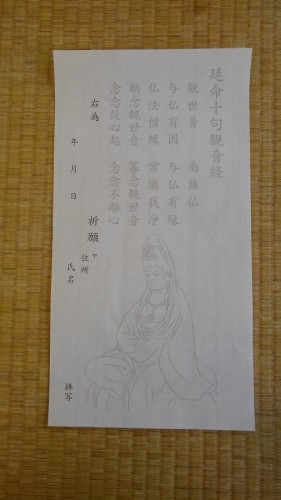 延命十句観音経
観世音　南無仏
与仏有因　与仏有縁
仏法僧縁　常楽我浄
朝念観世音　暮念観世音
念念従心起　念念不離心
右為
年　月　日
祈願
〒
住所
氏名
拝写